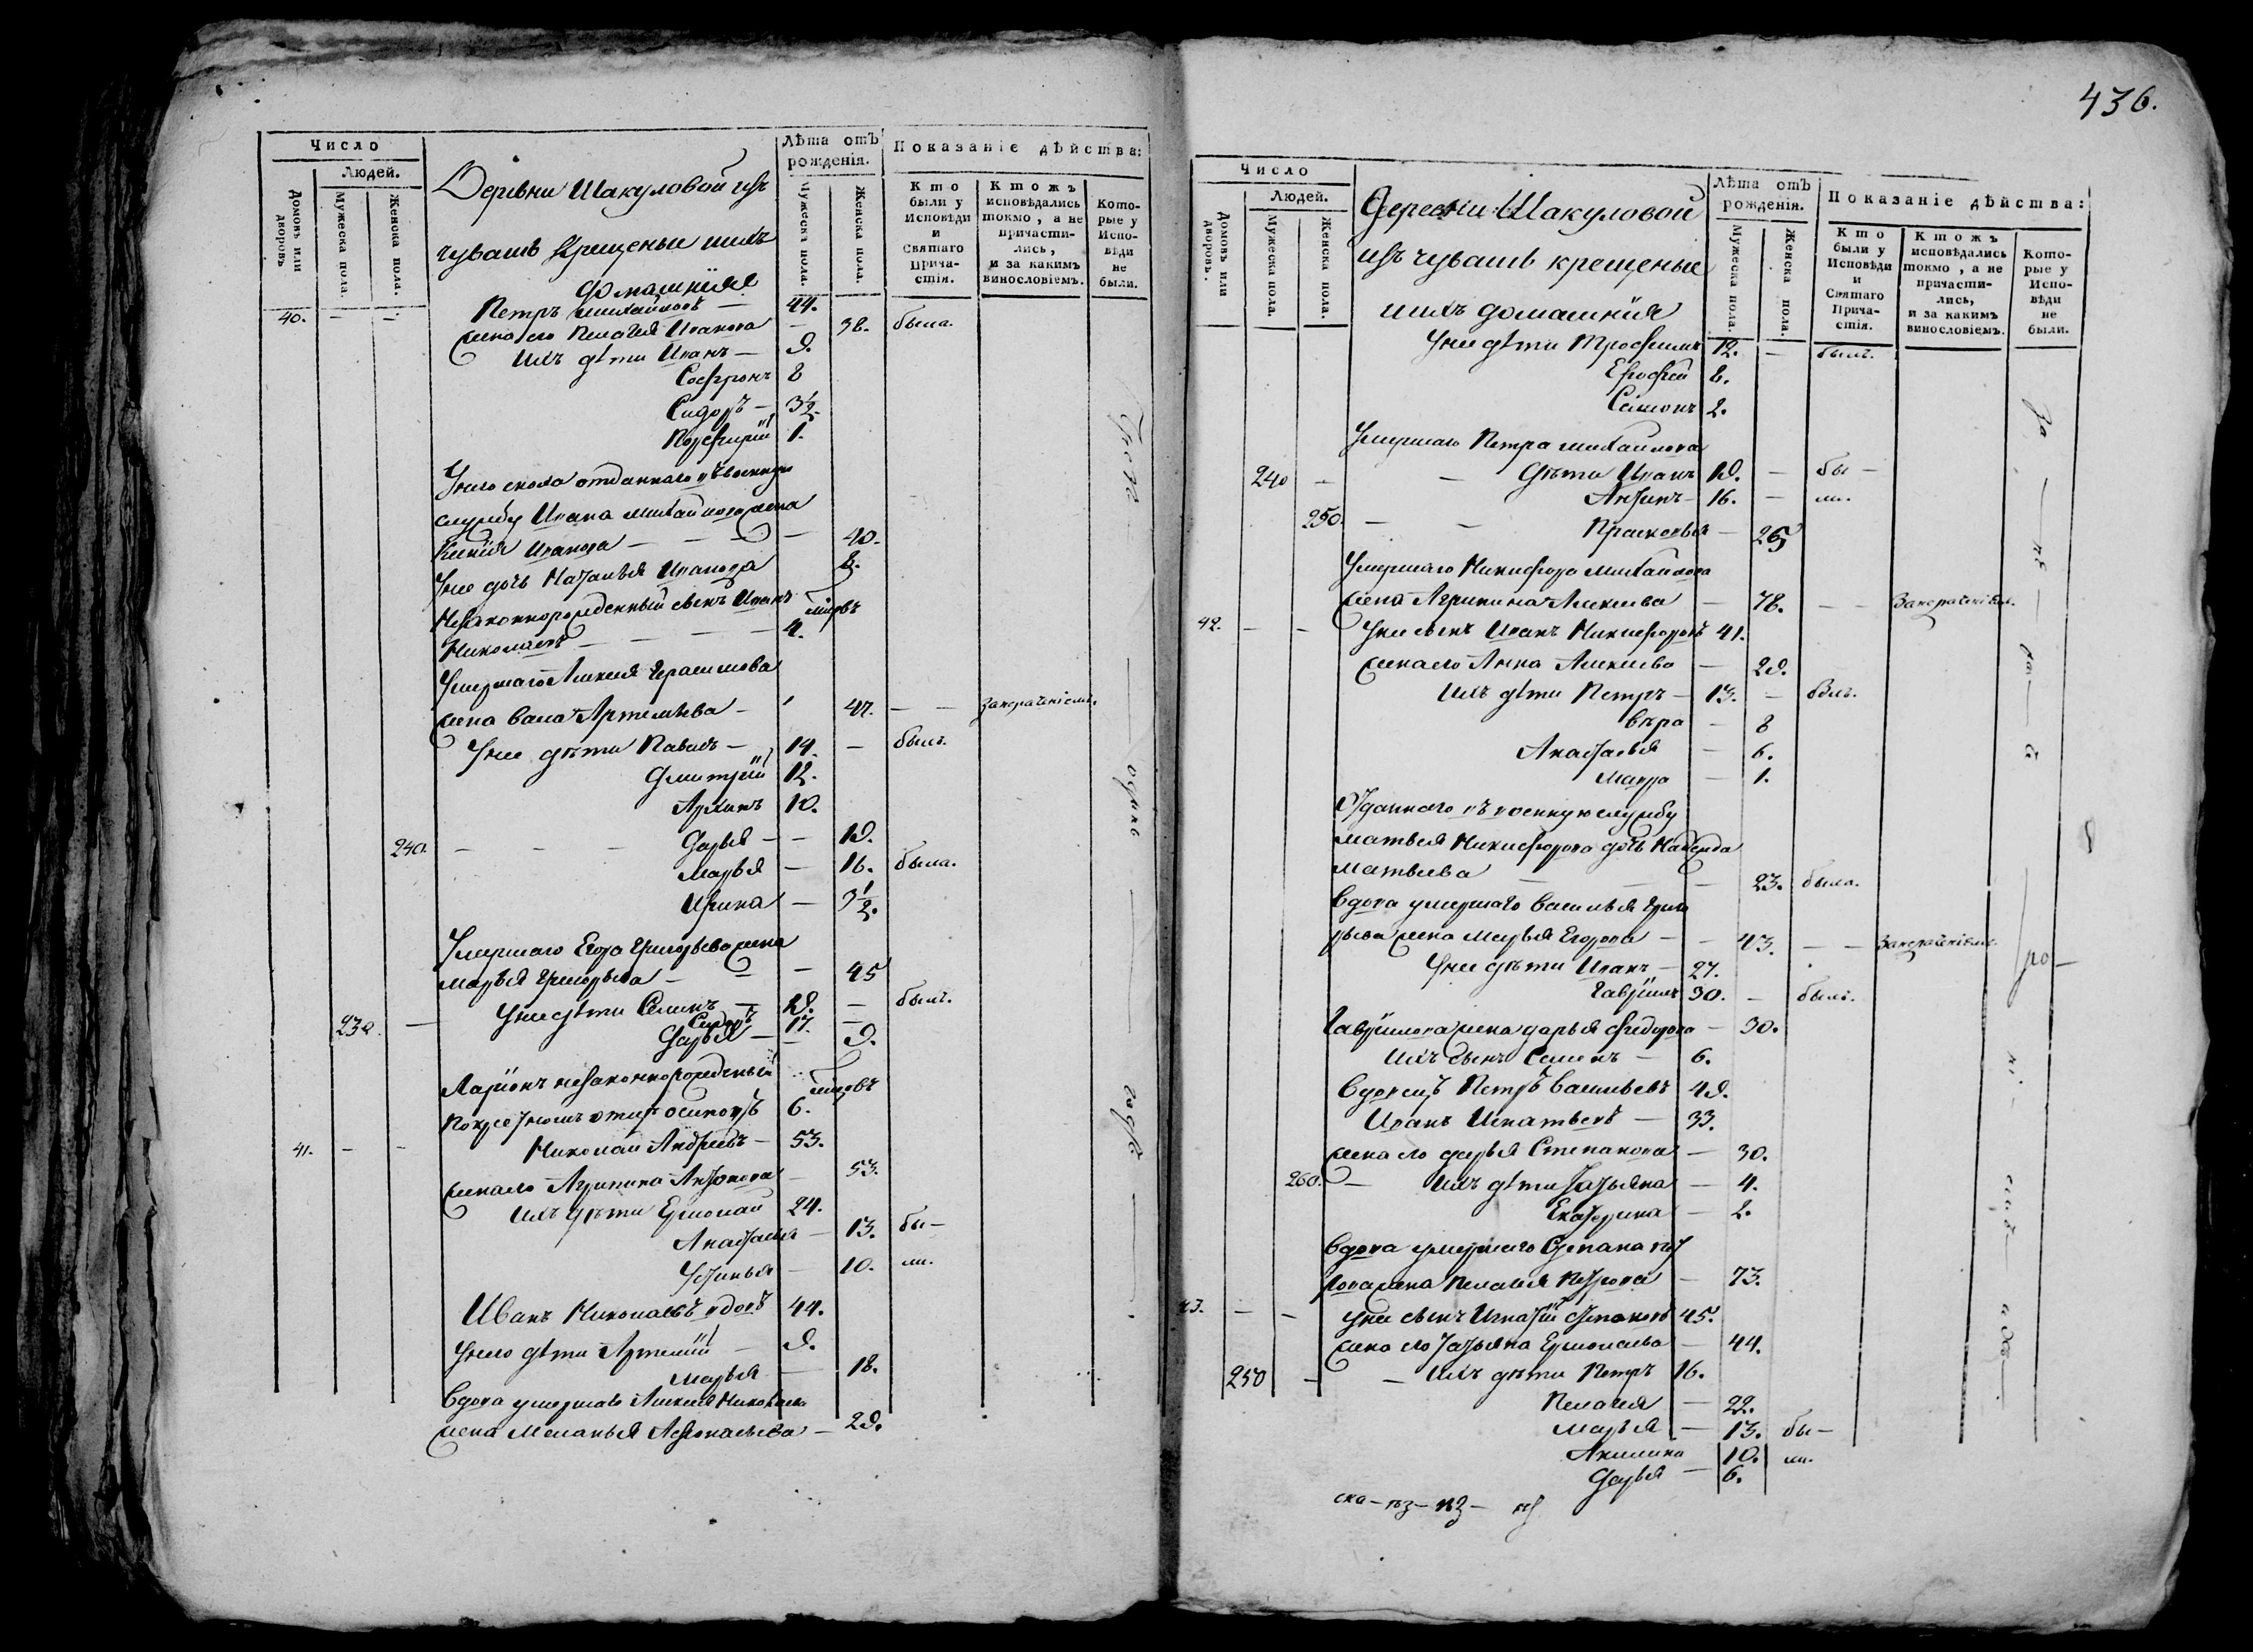 Число
Людей.
Домовъ или дворовъ
Мужеска пола.
Женска пола.
Деревни Шакуловой изъ
чувашъ крещеные ихъ
домашнія
Лѣта отъ рожденія.
Мужеска пола.
Женска пола.
Показаніе дѣйства:
Кто были у Исповѣди и Святаго Причастія.
Ктожъ исповѣдались токмо, а не причастились, и за какимъ винословіемъ.
Которые у Исповѣди не были.
40. — — Петръ Михайловъ — 44.
жена его Пелагея Иванова — 38. была.
Ихъ дѣти Иванъ — 9.
Софронъ 8
Сидоръ — 3 1/2.
Порфирий 1.
У него сноха отданнаго въ военную
службу Ивана Михайлова жена
Иванова — — — 40.
У нее дочь Наталья Иванова 8.
Незаконнорожденный сынъ Иванъ
Николаевъ — — — 4.
Умершаго Алексея Герасимова
жена васа Артемьева — 47. — — За кратѣніемъ.
У нее дѣти Павелъ — 14. — былъ.
Дмитрей 12.
Архипъ 10.
240. — — — Дарья — — 19.
Марья — 16. была.
Ирина — 3 1/2.
Умершаго Егора Григорьева жена
Марья Григорьева — — — 45
У нее дѣти Семенъ — 19. — былъ.
Сидоръ 17. —
239. — Дарья — — 9.
Ларіонъ незаконнорожденный
6.
41. — — Николай Андреевъ — 53.
жена его Агрипина Антонова — 53.
Ихъ дѣти Ермолай 24.
Анастасия — 13. бы—
Устинья — 10. ли.
Иванъ Николаевъ вдовъ 44.
У него дѣти Артемій — 9.
Марья — 18.
Вдова умершаго Алексея Николаева
жена Меланья Афонасьева — 29.
436.
Число
Людей.
Домовъ или дворовъ.
Мужеска пола.
Женска пола.
Деревни Шакуловой
изъ чувашъ крещеные
ихъ домашнія
Лѣта отъ рожденія.
Мужеска пола.
Женска пола.
Показаніе дѣйства:
Кто были у Исповѣди и Святаго Причастія.
Ктожъ исповѣдались токмо, а не причастились, и за какимъ винословіемъ.
Которые у Исповѣди не были.
У нее дѣти Трофимъ 12. — былъ.
Ерофей 8.
Семенъ 2.
Умершаго Петра Михайлова
240 — — Дѣти Иванъ 19. — бы —
Антипъ — 16. — ли.
250. — — Прасковья — 25
Умершаго Никифора Михайлова
жена Агрипина Алексеева — 78. — — За кратѣніемъ.
42. — — У нее сынъ Иванъ Никифоровъ 41.
жена его Анна Алексеева — 29.
Ихъ дѣти Петръ — 13. — былъ.
Вѣра — 8
Анастасья — 6.
Мавра — 1.
Отданнаго въ военную службу
Матвея Никифорова дочь Надежда
Матвеева — — — 23. была.
Вдова умершаго Василья Григо
рьева жена Марья Егорова — — 43. — — За кратѣніемъ.
У нее дѣти Иванъ — 27.
Гаврилъ 30. — былъ.
Гаврилова жена дарья Федорова — 30.
Ихъ сынъ Семенъ — 6.
Вдовецъ Петръ Васильевъ 49.
Иванъ Игнатьевъ — 33.
жена его дарья Степанова — 30.
260. — Ихъ дѣти Татьяна — 4.
Екатерина — 2.
Вдова умершаго Степана Пет
рова жена Пелагея Петрова — 73.
43. — — У нее сынъ Игнатій Степановъ 45.
жена его Татьяна Ермолаева — 44.
250 — — Ихъ дѣти Петръ 16.
Пелагея — 22.
Марья — 13. бы—
Акилина 10. ли.
Дарья — 6.